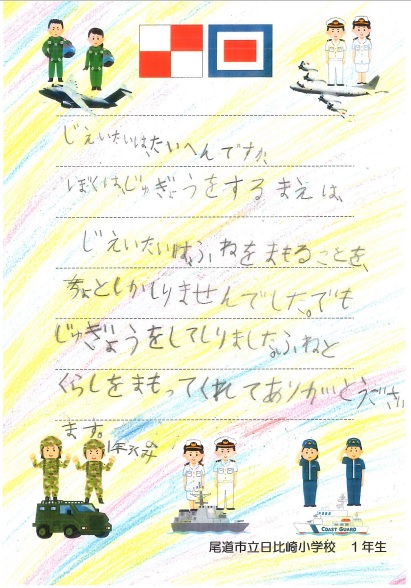 じえいたいは、たいへんですか、
ぼくは、じゅぎょうをするまえは、
じえいたいは、ふねをまもることを、
ちょとしかしりませんでした。でも
じゅぎょうをしてしりました。ふねと
くらしをまもってくれてありがとうござい
ます。
COAST GUARD
尾道市立日比崎小学校 1年生